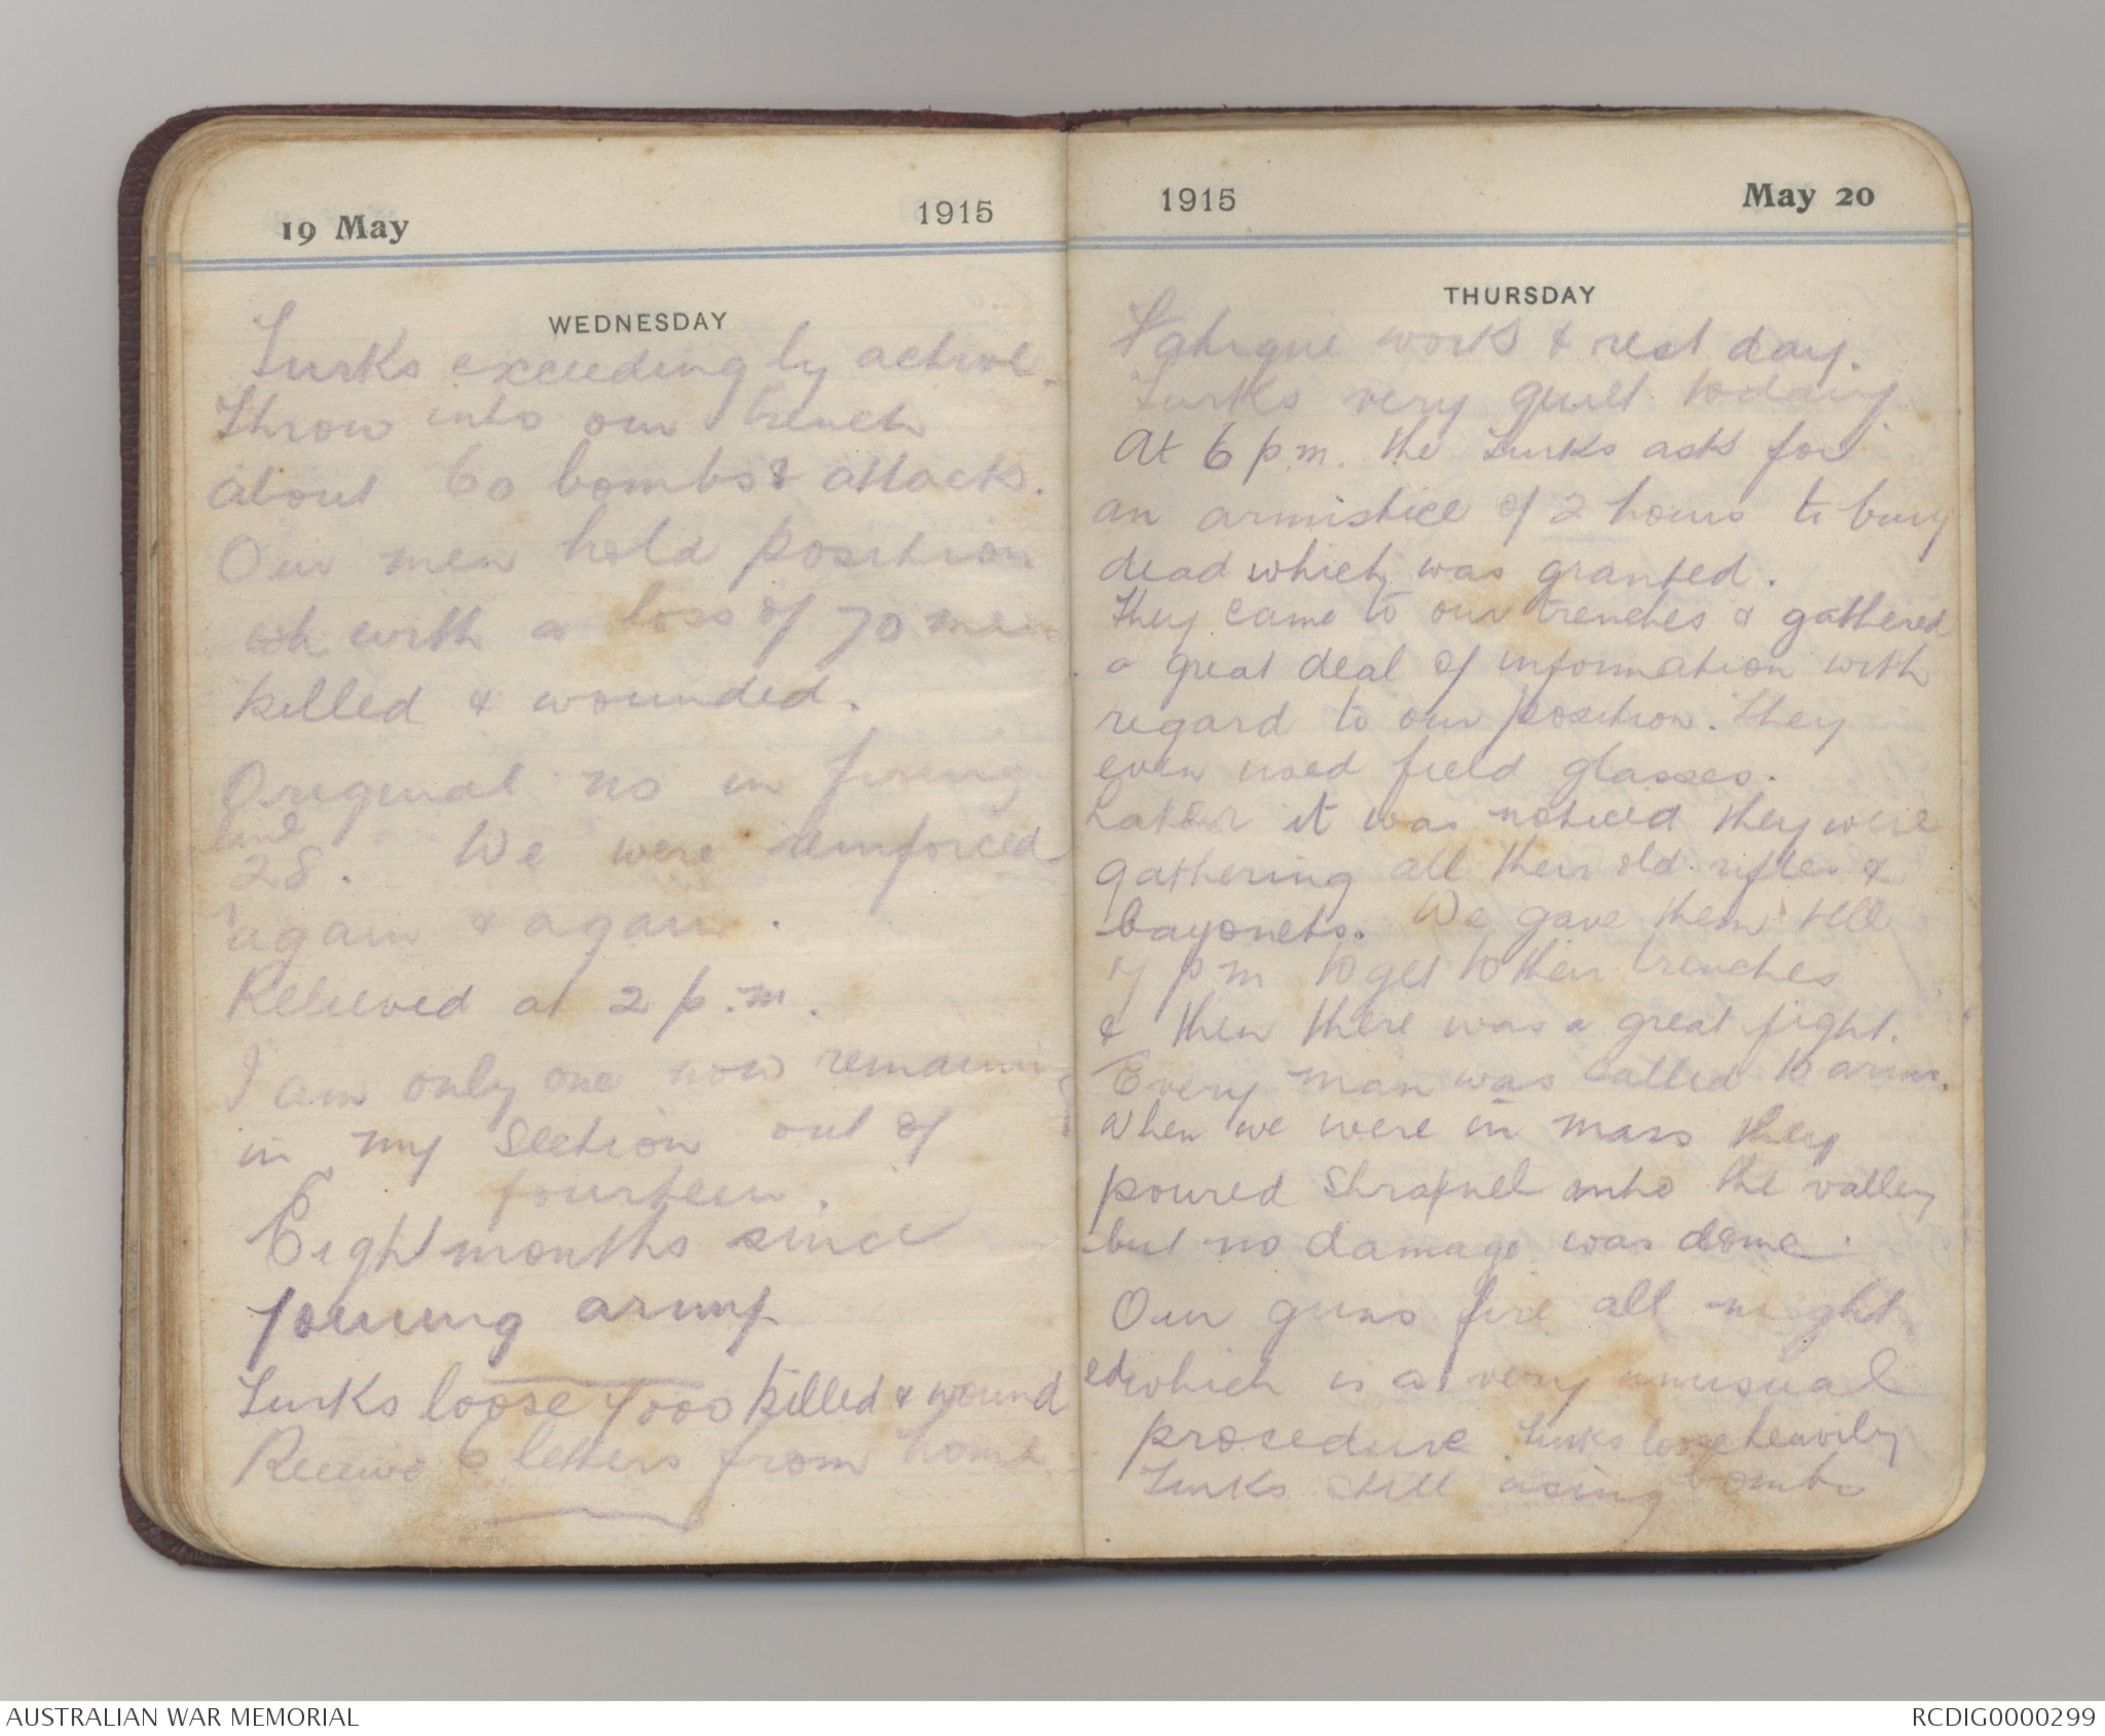 19 May 1915
WEDNESDAY
Turks exceedingly active.
Throw into our trench
about 60 bombs & attacks.
Our men hold position
with a loss of 70 men
killed & wounded.
Original no in firing
line
28. We were reinforced
again & again.
Relieved at 2 p.m.
I am only one now remaining
in my section out of
fourteen.
Eight months since
joining army
Turks loose 7000 killed & wound
Receive 6 letters from home
1915 May 20
THURSDAY
Fatigue work & rest day.
Turks very quiet today
At 6 p.m. the Turks ask for
an armistice of 2 hours to bury
dead which was granted.
They came to our trenches & gathered
a great deal of information with
regard to our position. They
even used field glasses.
Later it was noticed they were
gathering all their old rifles &
bayonets. We gave them till
7 pm to get to their trenches
& then there was a great fight.
Every man was called to arms.
When we were in mass they
poured shrapnel into the valley
but no damage was done.
Our guns fire all night
ed which is a very unusual
procedure. Turks loose heavily
Turks still using bombs
AUSTRALIAN WAR MEMORIAL
RCDIG0000299